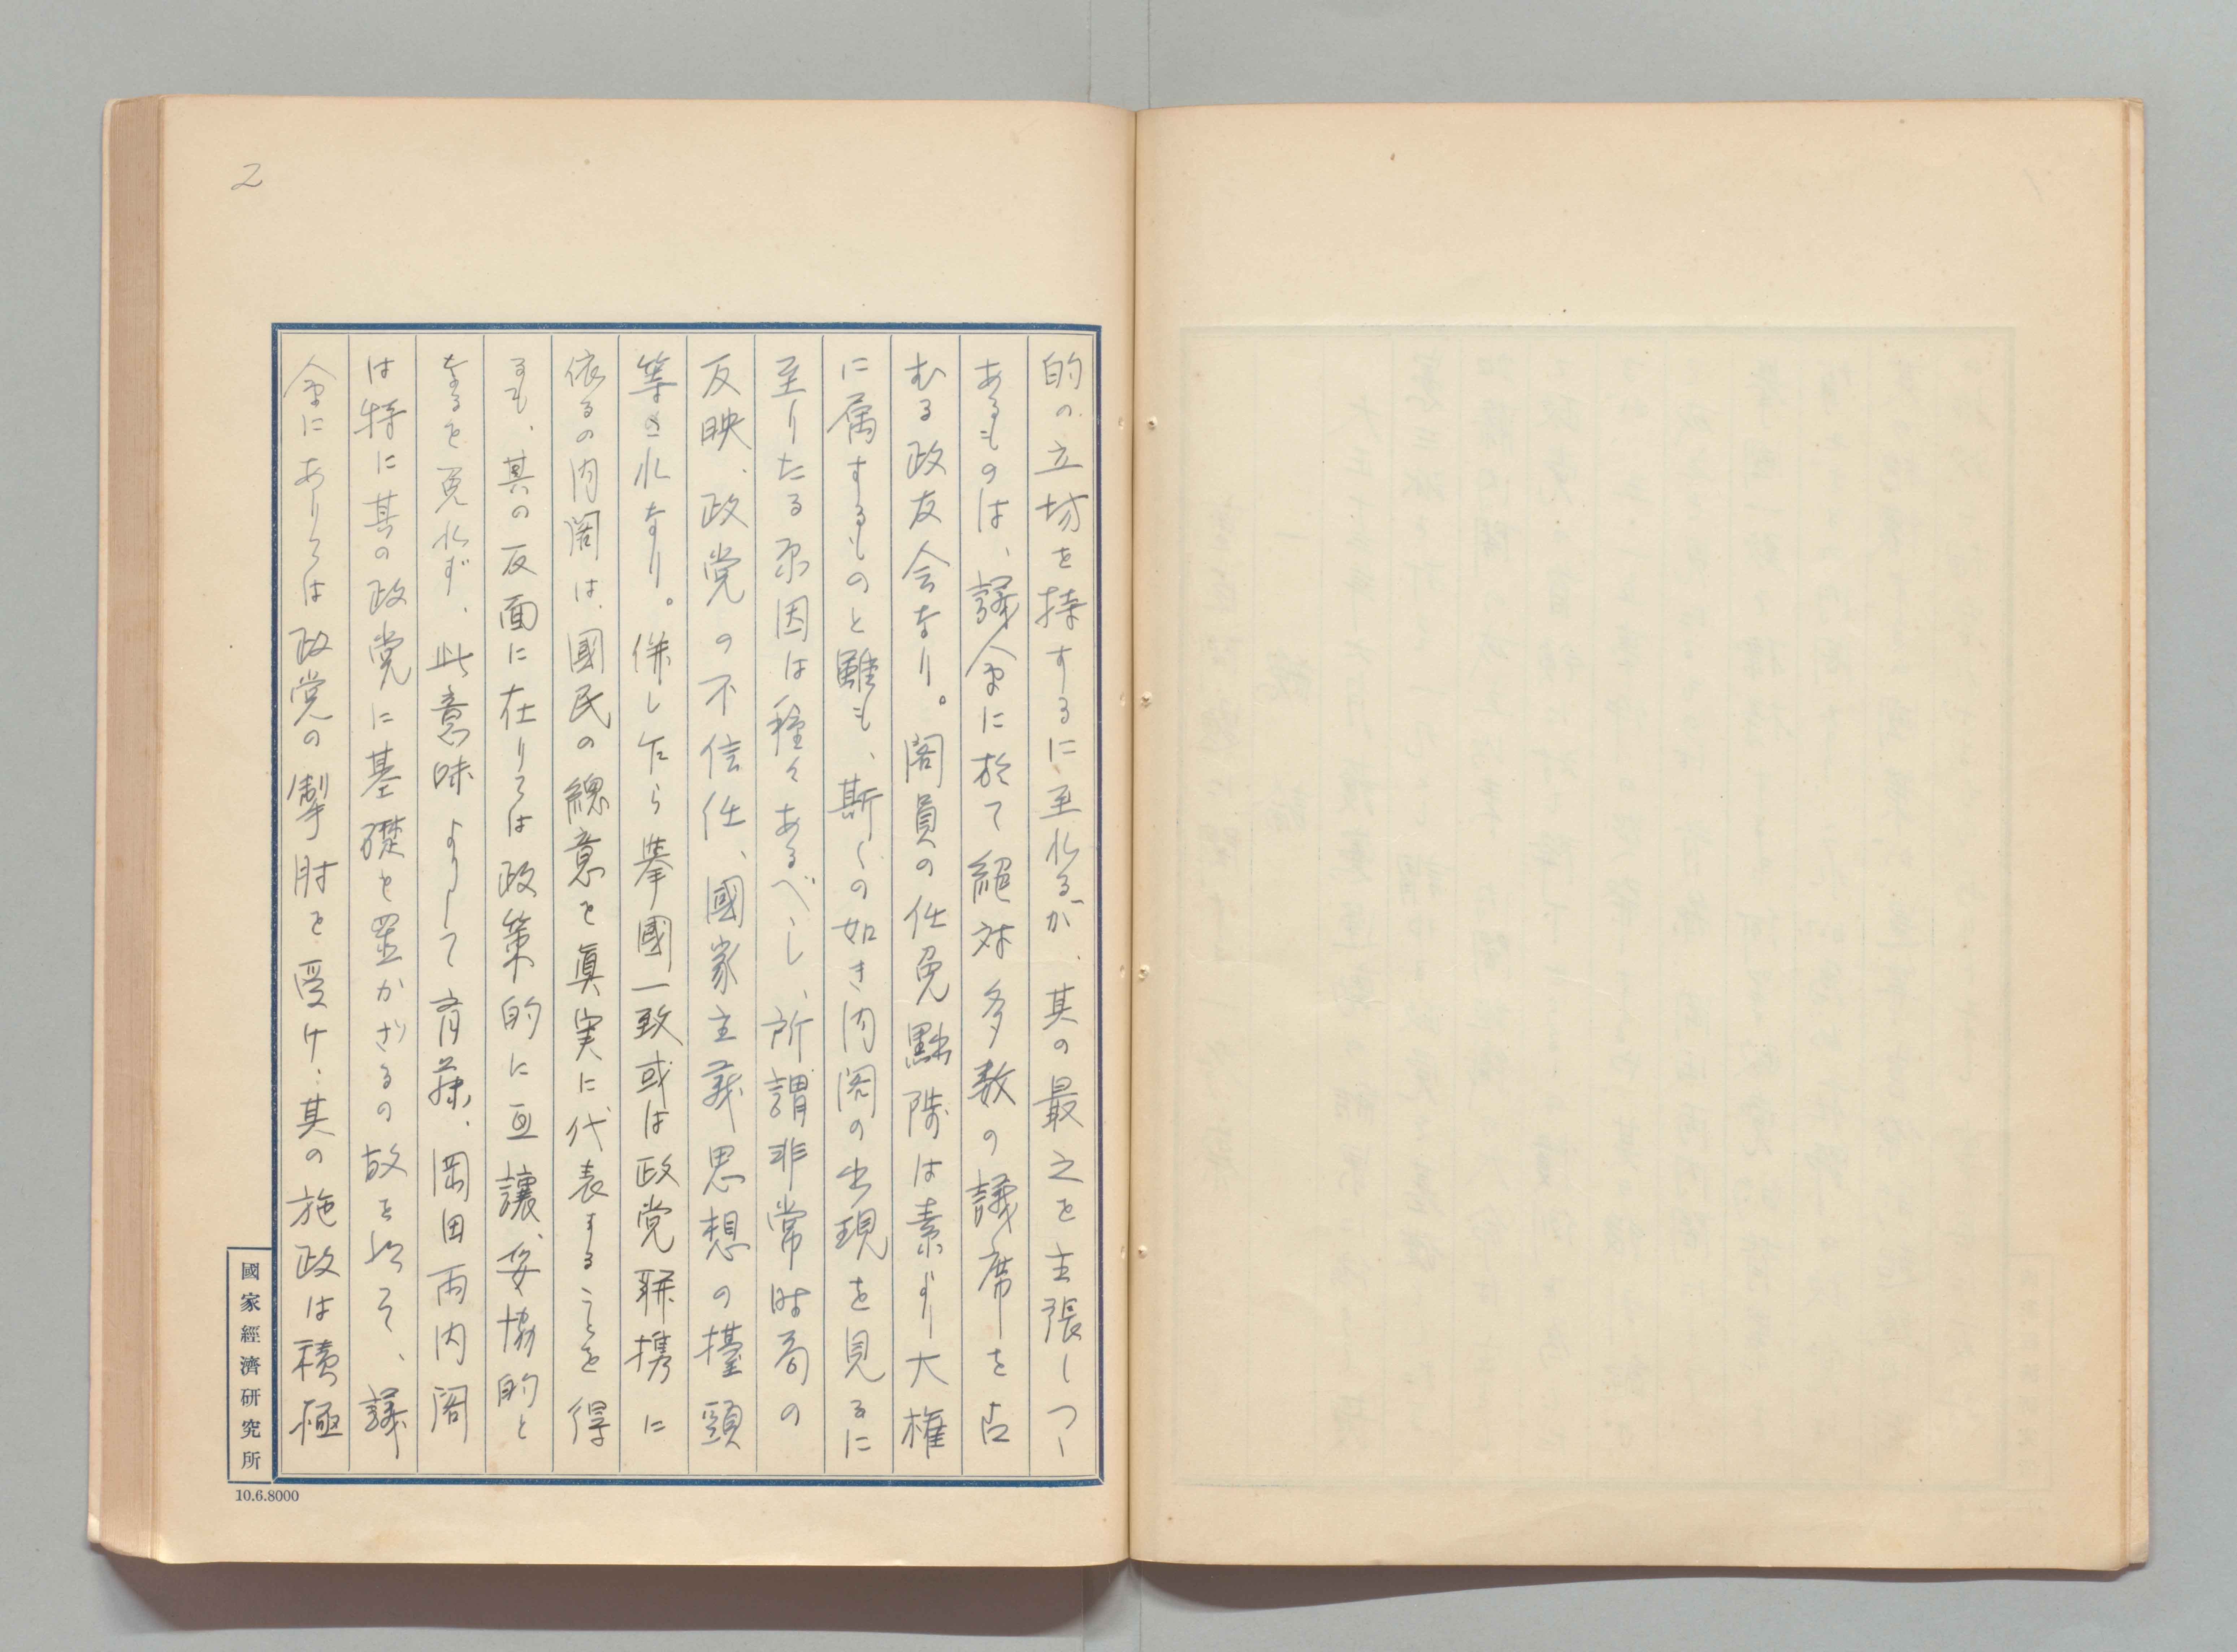 2
的の立場を持するに至れるが、其の最之を主張しつゝ
あるものは、議会に於て絶対多数の議席を占
むる政友会なり。閣員の任免黜陟は素より大権
に属するものと雖も、斯くの如き内閣の出現を見るに
至りたる原因は種々あるべし、所謂非常時局の
反映、政党の不信任、國家主義思想の擡頭
等之れなり。併し乍ら挙國一致或は政党聯携に
依るの内閣は、國民の總意を眞実に代表することを得
るも、其の反面に在りては政策的に互譲、妥協的と
なるを免れず、此意味よりして斉藤、岡田両内閣
は特に其の政党に基礎を置かざるの故を以て、議
会にありては政党の掣肘を受け、其の施政は積極
國家經濟研究所
10.6.8000